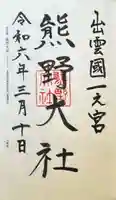 出雲國一之宮
熊野大社
令和六年三月十日